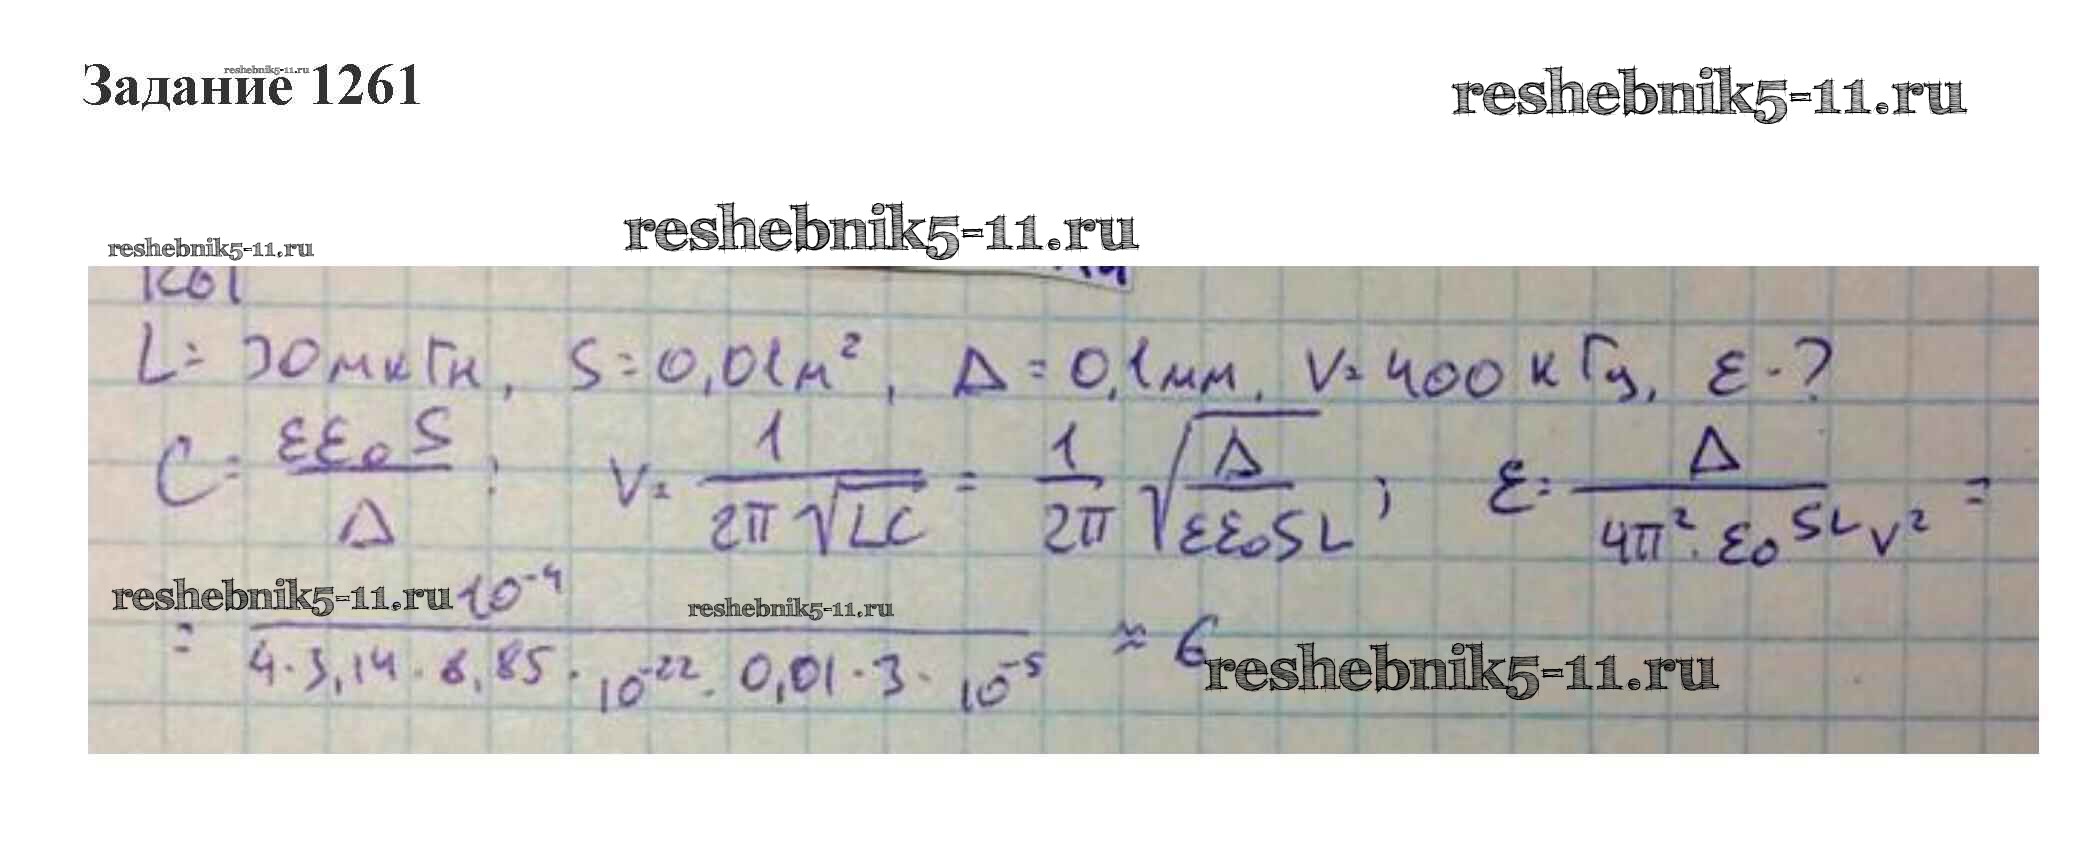 Задание 1261
reshebnik5-11.ru
reshebnik5-11.ru
reshebnik5-11.ru
reshebnik5-11.ru
1261
L = 30 мкГн, S = 0,01 м², Δ = 0,1 мм, ν = 400 кГц, ε - ?
C = εε₀S / Δ ; ν = 1 / 2π√LC = 1 / 2π √Δ / εε₀SL ; ε = Δ / 4π² · ε₀ SL ν² =
reshebnik5-11.ru
reshebnik5-11.ru
= 10⁻⁴ / 4 · 3,14 · 8,85 · 10⁻²² · 0,01 · 3 · 10⁻⁵ ≈ 6
reshebnik5-11.ru